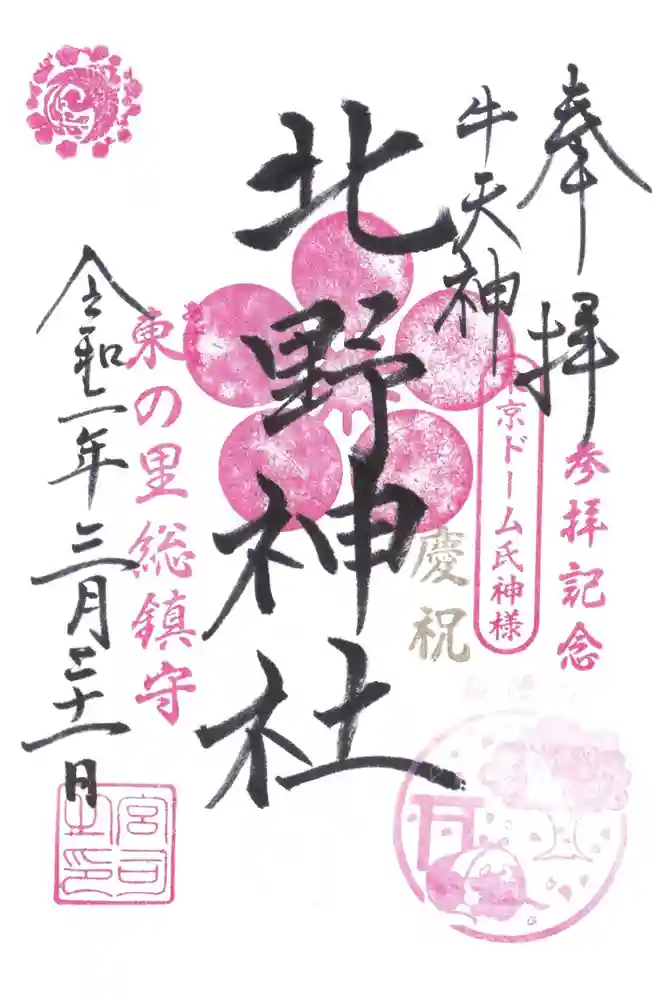 奉拝
参拝記念
牛天神
東京ドーム氏神様
北野神社
慶祝
東の里総鎮守
令和二年三月二十一日
宮司之印